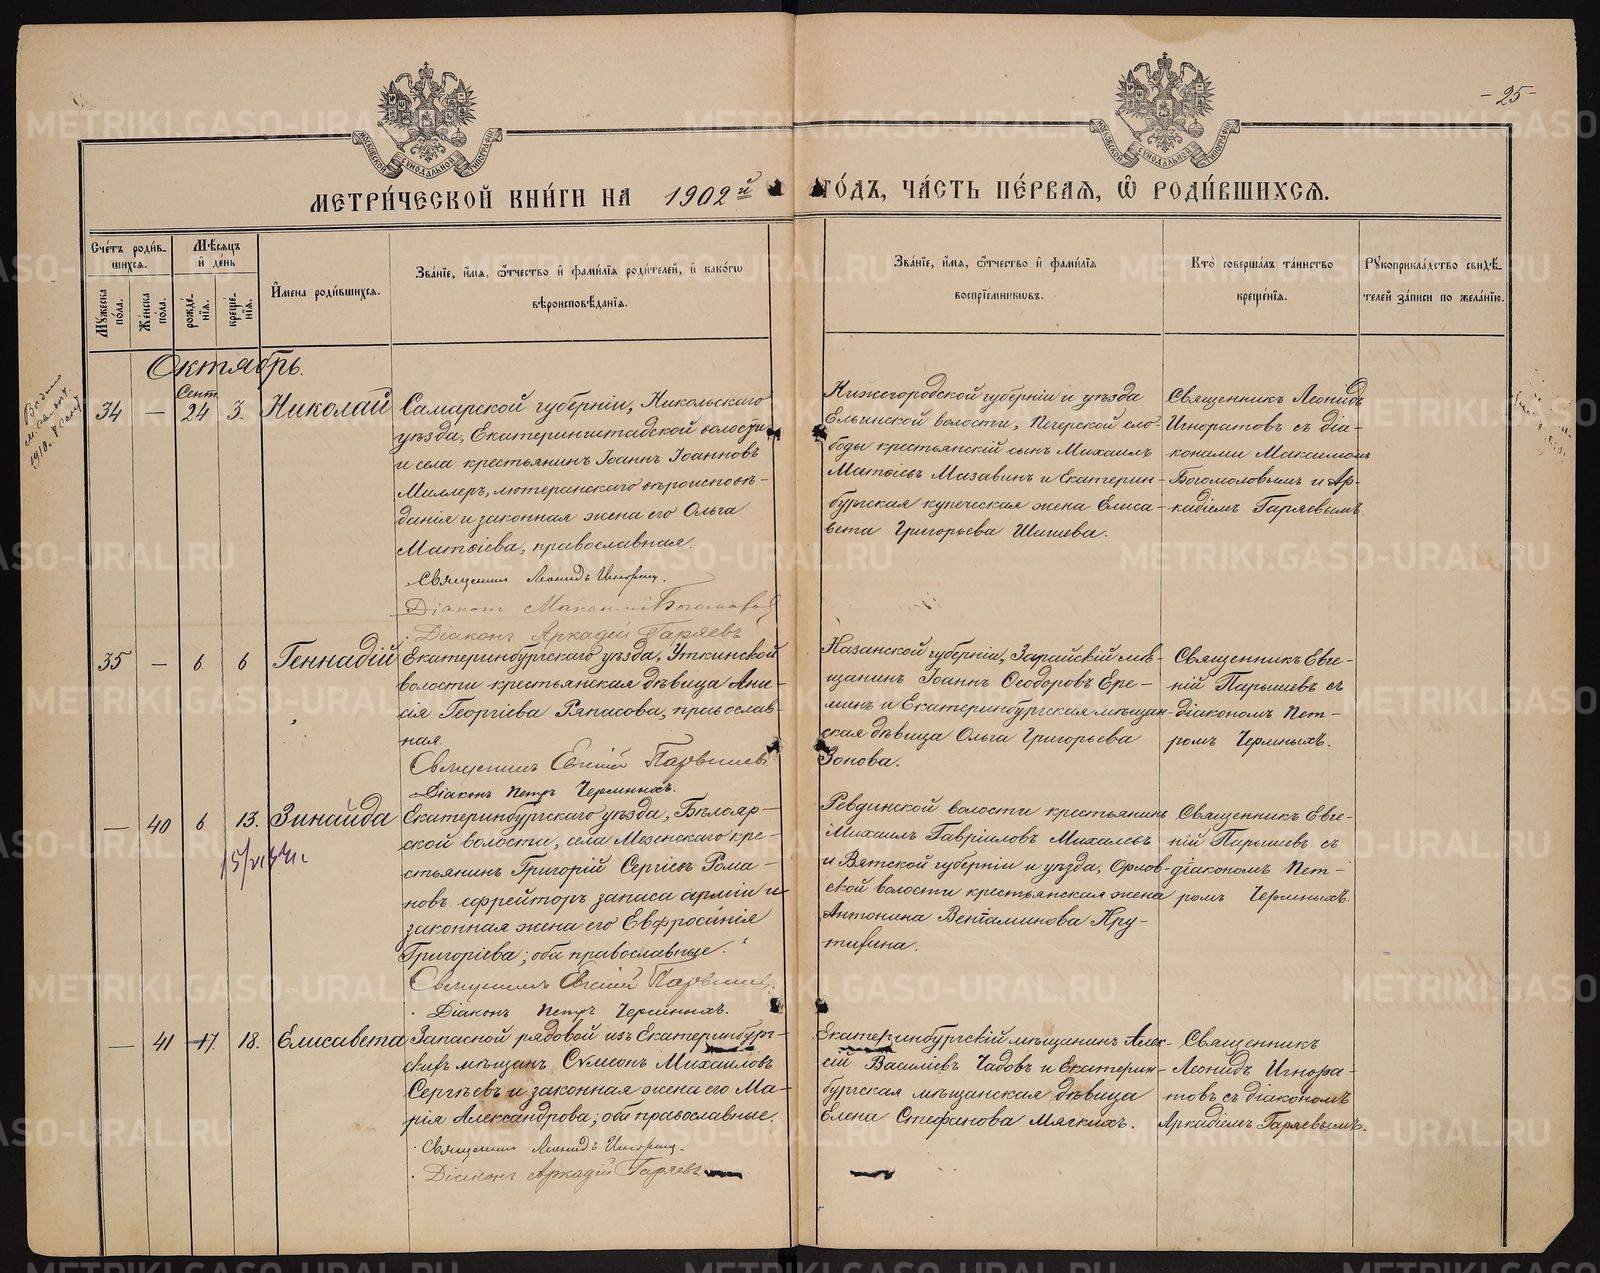 -25-
МЕТРИ́ЧЕСКОЙ КНИ́ГИ НА 1902й
ГО́ДЪ, ЧА́СТЬ ПЕ́РВАЯ, Ѽ РОДИ́ВШИХСЯ.
МОСКОВСКОЙ СѴНОДАЛЬНОЙ ТИПОГРАФІИ
МОСКОВСКОЙ СѴНОДАЛЬНОЙ ТИПОГРАФІИ
Сче́тъ роди́в-
шихся.
Му́жеска по́ла.
Же́нска по́ла.
Мѣ́сяцъ
и҆ де́нь
рожде́-
нїя.
креще́-
нїя.
И҆мена роди́вшихся.
Зва́нїе, и҆́мя, ѻ҆́тчество и҆ фами́лїя роди́телей, и҆ како́гѡ
вѣроисповѣ́данїя.
Зва́нїе, и҆́мя, ѻ҆́тчество и҆ фами́лїя
воспрїе́мникѡвъ.
Кто̀ соверша́лъ та́инство
креще́нїя.
Рꙋкоприкла́дство свидѣ́-
телей за́писи по жела́нїю.
Октябрь.
34 — Сент. 24 3. Николай
Самарской губерніи, Никольскаго
уѣзда, Екатериншта​дской волости
и села крестьянинъ Іоаннъ Іоанновъ
Миллеръ, лютеранскаго вѣроисповѣ-
данія и законная жена его Ольга
Матѳіева, православная.
Священникъ Леонидъ Игноратовъ.
Діаконъ Максимъ Богомоловъ
Діаконъ Аркадій Гаряевъ
Нижегородской губерніи и уѣзда
Ельнинской волости, Печерской сло-
боды крестьянскій сынъ Михаилъ
Матѳіевъ Мазавинъ и Екатерин-
бургская купеческая жена Елиса-
вета Григорьева Шишева.
Священникъ Леонидъ
Игноратовъ съ діа-
конами Максимомъ
Богомоловымъ и Ар-
кадіемъ Гаряевымъ
35 — 6 6 Геннадій
Екатеринбургскаго уѣзда, Уткинской
волости крестьянская дѣвица Ани-
сія Георгіева Ряпасова, православ-
ная.
Священникъ Евгеній Парышевъ
Діаконъ Петръ Черныхъ.
Казанской губерніи, Зарайскій мѣ-
щанинъ Іоаннъ Ѳеодоровъ Ере-
минъ и Екатеринбургская мѣщан-
ская дѣвица Ольга Григорьева
Зонова.
Священникъ Евге-
ній Парышевъ съ
діакономъ Пет-
ромъ Черныхъ.
— 40 6 13. Зинаида
Екатеринбургскаго уѣзда, Бѣлояр-
ской волости, села Мезенскаго кре-
стьянинъ Григорій Сергіевъ Рома-
новъ ефрейторъ запаса арміи и
законная жена его Евфросинія
Григоріева; оба православные.
Священникъ Евгеній Парышевъ
Діаконъ Петръ Черныхъ.
Ревдинской волости крестьянинъ
Михаилъ Гавріиловъ Михалевъ
и Вятской губерніи и уѣзда, Орлов-
ской волости крестьянская жена
Антонина Веніаминова Кру-
тихина.
Священникъ Евге-
ній Парышевъ съ
діакономъ Пет-
ромъ Черныхъ.
— 41 17. 18. Елисавета
Запасной рядовой изъ Екатеринбург-
скихъ мѣщанъ Сѵмеонъ Михаиловъ
Сергѣевъ и законная жена его Ма-
рія Александрова; оба православные.
Священникъ Леонидъ Игноратовъ.
Діаконъ Аркадій Гаряевъ
Екатеринбургскій мѣщанинъ Алек-
сій Василіевъ Чадовъ и Екатерин-
бургская мѣщанская дѣвица
Елена Стефанова Мягкихъ.
Священникъ
Леонидъ Игнора-
товъ съ діакономъ
Аркадіемъ Гаряевымъ.
METRIKI.GASO-URAL.RU